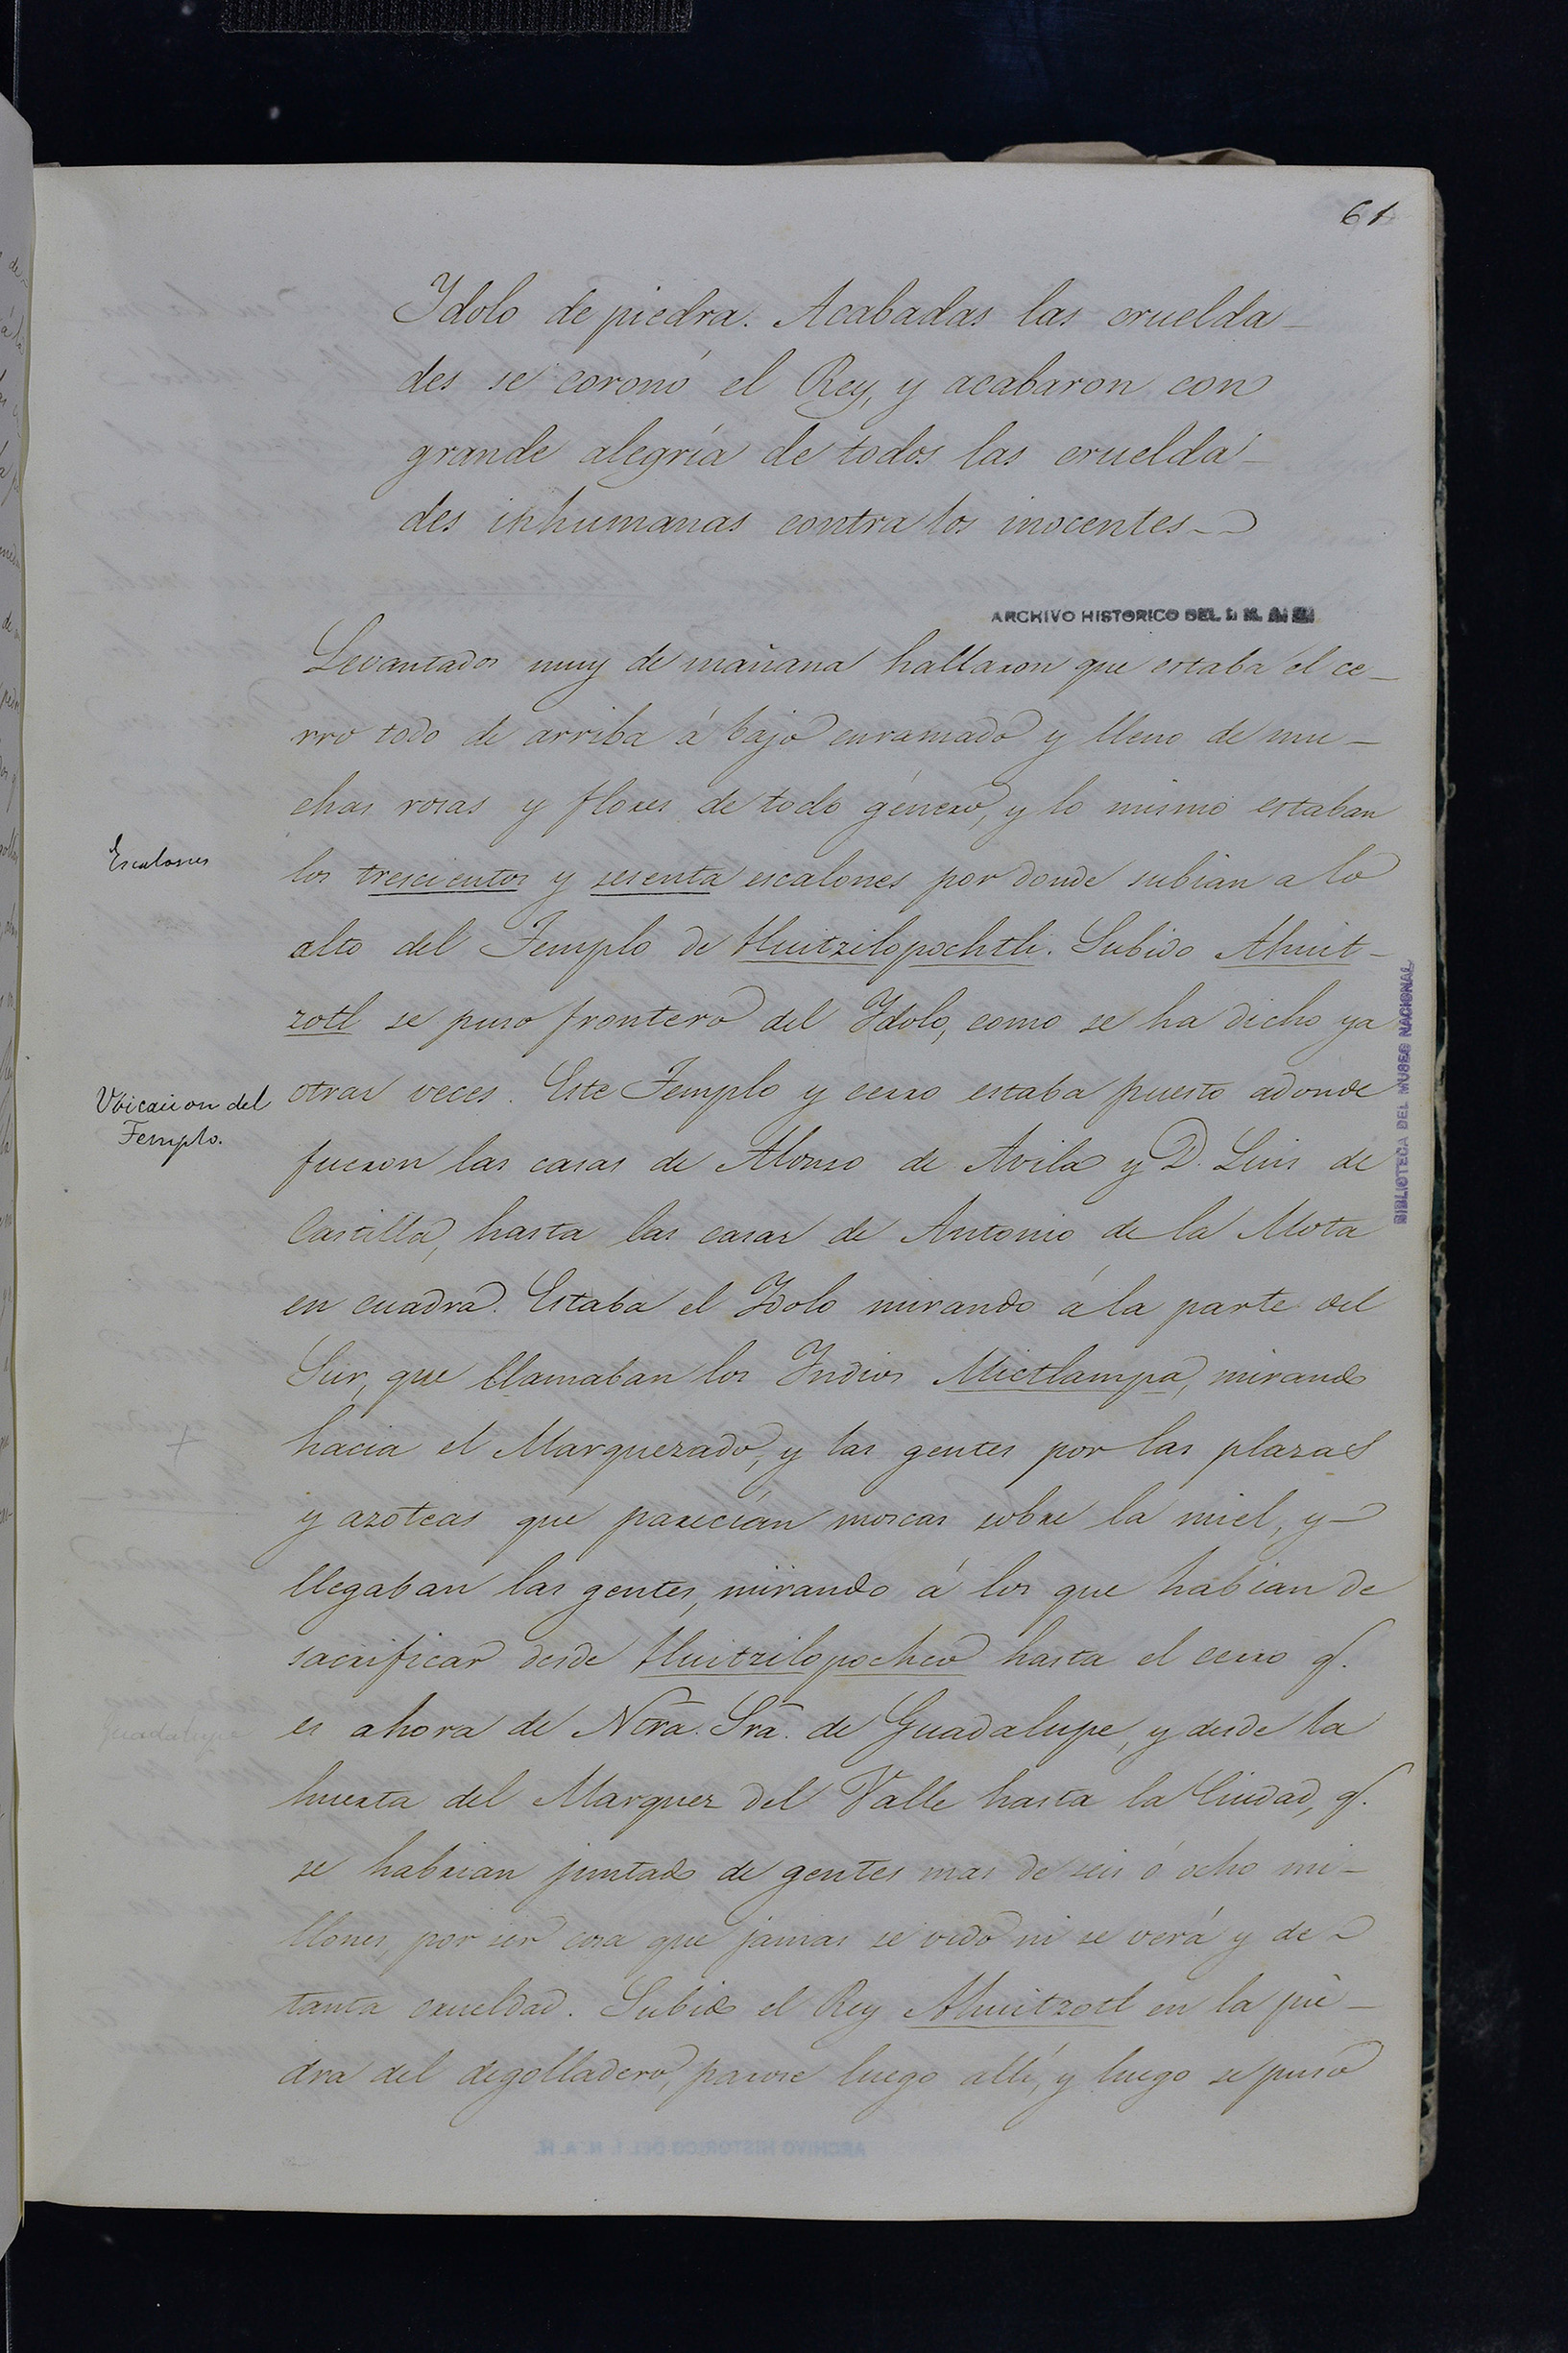 61
Ydolo de piedra. Acabadas las cruelda-
des se coronó el Rey, y acabaron con
grande alegría de todos las cruelda-
des inhumanas contra los inocentes-
ARCHIVO HISTORICO DEL I. N. A. H.
Levantados muy de mañana hallaron que estaba el ce-
rro todo de arriba á bajo enramado y lleno de mu-
chas rosas y flores de todo género, y lo mismo estaban
Escalones
los trescientos y sesenta escalones por donde subian a lo
alto del Templo de Huitzilopochtli. Subido Ahuit-
zotl se puso frontero del Ydolo, como se ha dicho ya
Ubicacion del
Templo.
otras veces. Este Templo y cerro estaba puesto adonde
fueron las casas de Alonso de Avila y D. Luis de
Castilla, hasta las casas de Antonio de la Mota
en cuadra. Estaba el Ydolo mirando á la parte del
Sur, que llamaban los Yndios Mictlampa, mirando
hacia el Marquezado, y las gentes por las plazas
y azoteas que parecían moscas sobre la miel, y
llegaban las gentes, mirando á los que habian de
sacrificar desde Huitzilopocheo hasta el cerro q.
Guadalupe
es ahora de Ntra. Sra. de Guadalupe, y desde la
huerta del Marquez del Valle hasta la Ciudad, q.
se habrian juntado de gentes mas de seis ó ocho mi-
llones, por ser cosa que jamas se vido ni se verá y de
tanta crueldad. Subido el Rey Ahuitzotl en la pie-
dra del degolladero, parose luego allí, y luego se puso
BIBLIOTECA DEL MUSEO NACIONAL
ARCHIVO HISTORICO DEL I. N. A. H.